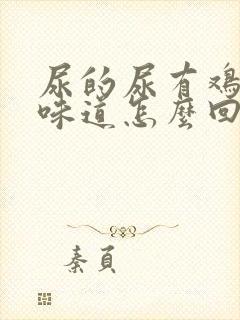 尿的尿有鸡
味道怎麼回
秦頁